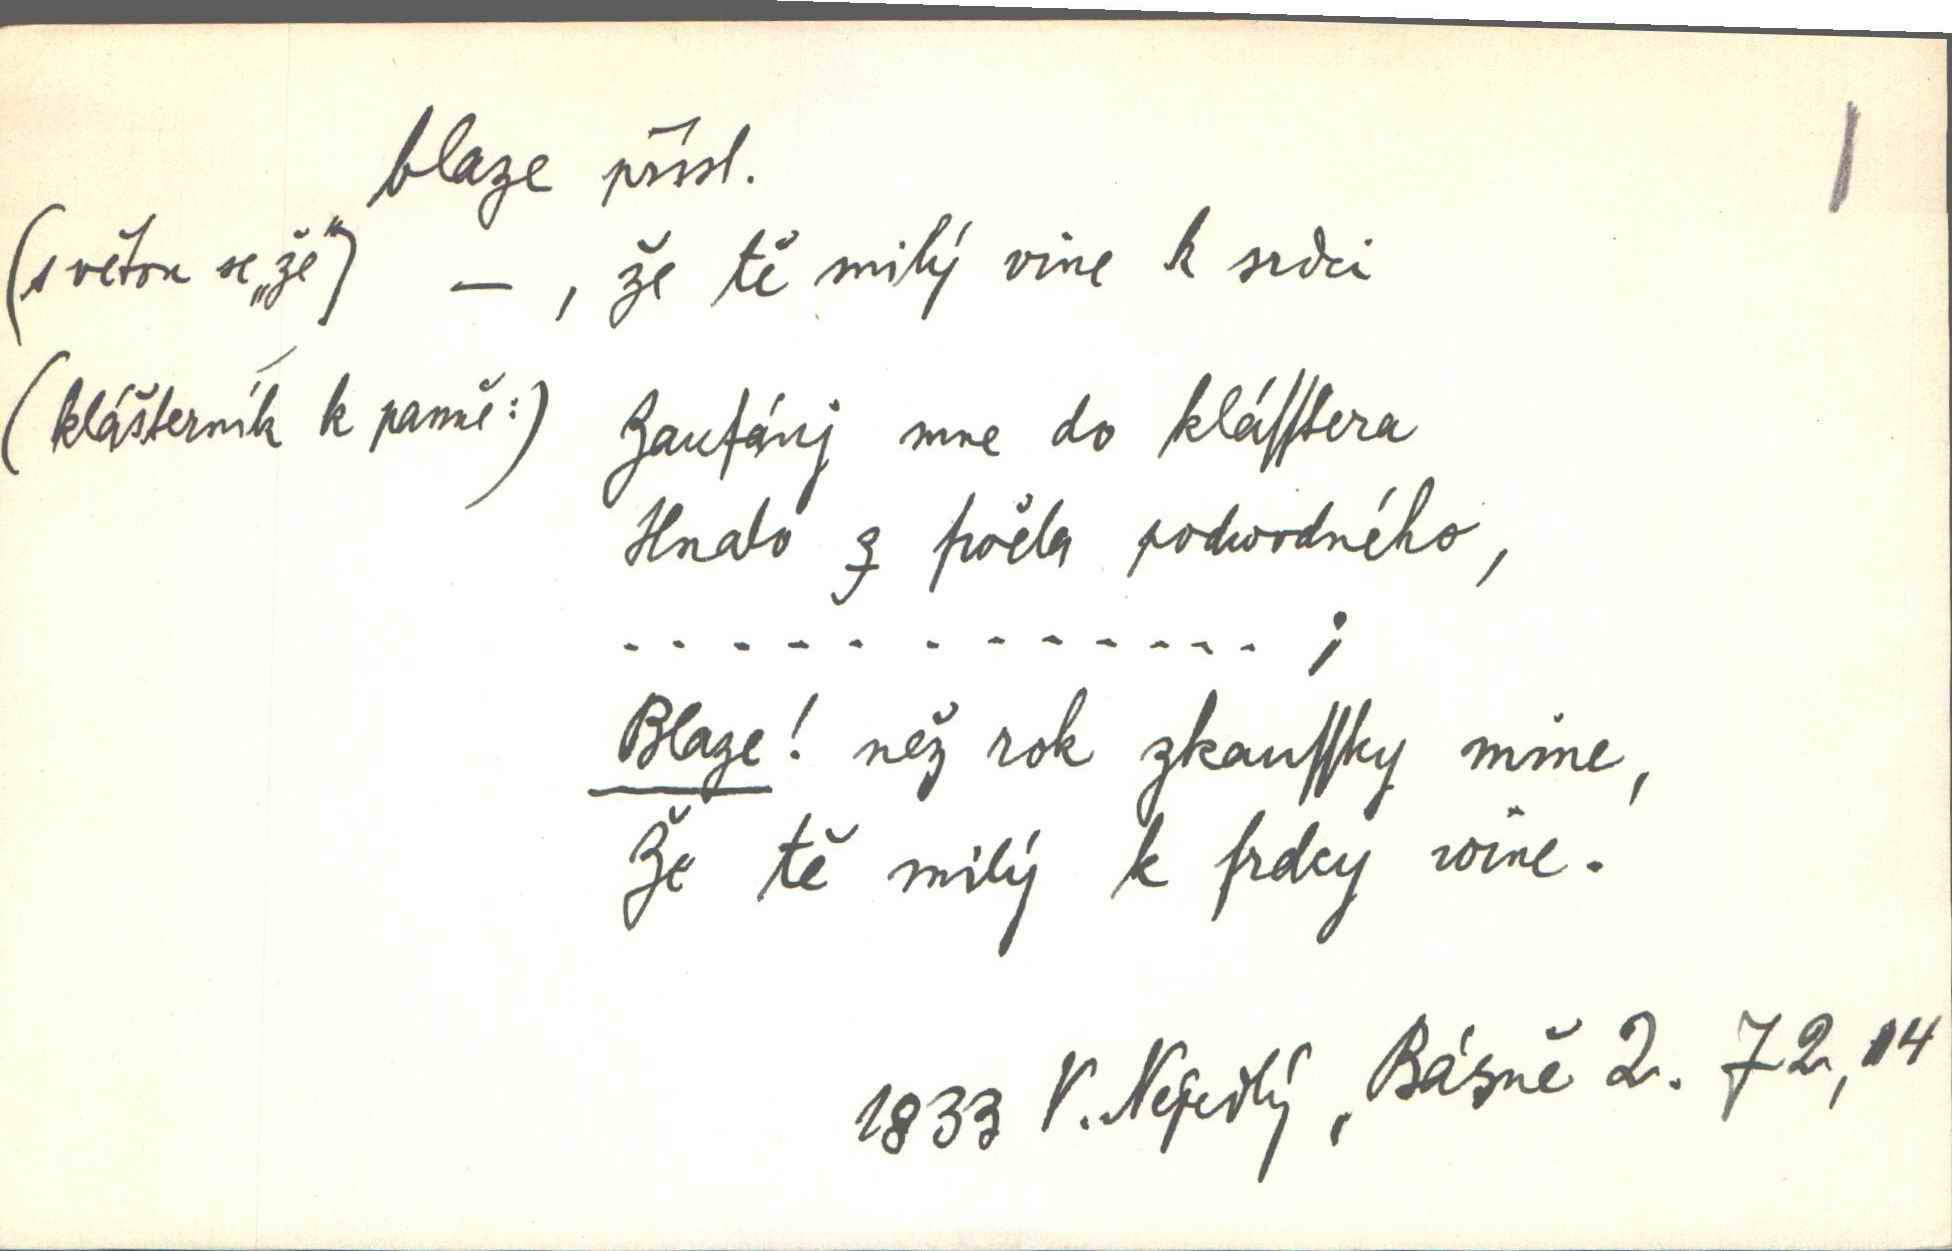 1
blaze přísl.
(s větou se „že“) —, že tě milý vine k srdci
(klášterník k panně:) Zaufáńj mne do kláſſtera
Hnalo z ſwěta podwodného,
- - - - - - - - - - - - ;
Blaze! než rok zkauſſky mine,
Že tě milý k ſrdcy wine.
1833 V. Nejedlý, Básně 2. 72, 14